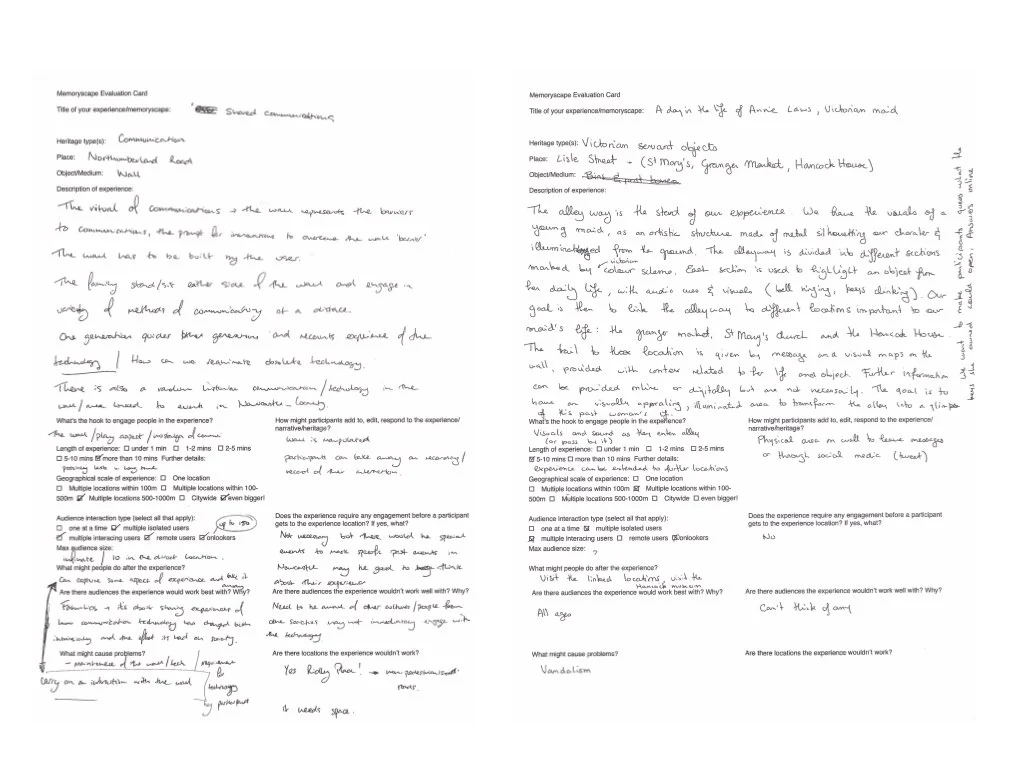 Memoryscape Evaluation Card
Title of your experience/memoryscape: Shared communications
Heritage type(s): Communication
Place: Northumberland Road
Object/Medium: Wall
Description of experience:
The ritual of communications → the wall represents the barriers
to communications, the prompt for interactions to overcome the wall 'barrier'
The wall has to be built by the user.
The family stand/sit either side of the wall and engage in
variety of methods of communicating at a distance.
One generation guides other generations and recounts experience of the
technology / How can we reanimate obsolete technology.
There is also a random listener communication/technology in the
wall/area linked to events in Newcastle - Society.
What's the hook to engage people in the experience?
the wall/play aspect/nostalgia of commu
Length of experience: ☐ under 1 min ☐ 1-2 mins ☐ 2-5 mins
☐ 5-10 mins ☑ more than 10 mins Further details:
Geographical scale of experience: ☐ One location
☐ Multiple locations within 100m ☐ Multiple locations within 100-
500m ☑ Multiple locations 500-1000m ☐ Citywide ☑ even bigger!
How might participants add to, edit, respond to the experience/
narrative/heritage?
wall is manipulated
participants can take away an recording/
record of their interaction.
Audience interaction type (select all that apply): up to 150
☐ one at a time ☑ multiple isolated users
☑ multiple interacing users ☑ remote users ☑ onlookers
Max audience size:
infinate / 10 in the direct location.
What might people do after the experience?
Can capture some aspect of experience and take it away
Are there audiences the experience would work best with? Why?
Families → its about sharing experiences of
how communication technology has changed both
interaction and the effect its had on society.
What might cause problems?
- maintenance of the wall/tech / requirement for technology
carry on an interaction with the wall
Does the experience require any engagement before a participant
gets to the experience location? If yes, what?
Not necessary but there would be special
events to mark specific past events in
Newcastle may be good to think
about their experience
Are there audiences the experience wouldn't work well with? Why?
Need to be aware of other cultures/people from
other societies may not immediately engage with
the technology
Are there locations the experience wouldn't work?
Yes Ridley Place! → non pedestrianised
roads.
it needs space.
Memoryscape Evaluation Card
Title of your experience/memoryscape: A day in the life of Annie Laws, Victorian maid
Heritage type(s): Victorian servant objects
Place: Lisle Street - (St Mary's, Granger Market, Hancock House)
Object/Medium:
Description of experience:
The alley way is the stend of our experience. We have the visuals of a
young maid, as an artistic structure made of metal silhouetting our charater &
illuminated from the ground. The alleyway is divided into different sections
marked by victorian colour scheme. Each section is used to highlight an object from
her daily life, with audio cues & visuals (bell ringing, keys clinking). Our
goal is then to link the alleyway to different locations important to our
maid's life: the granger market, St Mary's church and the Hancock House.
The trail to those location is given by message and visual maps on the
wall, provided with context related to her life and object. Further information
can be provided online or digitally but are not necessarily. The goal is to
have an visually appealing, illuminated area to transform the alley into a glimpse
of this past woman's life.
We want to make participants guess what the
keys she owned could open. Answers online
What's the hook to engage people in the experience?
Visuals and sound as they enter alley
(or pass by it)
Length of experience: ☐ under 1 min ☐ 1-2 mins ☐ 2-5 mins
☑ 5-10 mins ☐ more than 10 mins Further details:
experience can be extended to further locations
Geographical scale of experience: ☐ One location
☐ Multiple locations within 100m ☒ Multiple locations within 100-
500m ☐ Multiple locations 500-1000m ☐ Citywide ☐ even bigger!
How might participants add to, edit, respond to the experience/
narrative/heritage?
Physical area on wall to leave messages
or through social media (tweet)
Audience interaction type (select all that apply):
☐ one at a time ☒ multiple isolated users
☒ multiple interacing users ☐ remote users ☒ onlookers
Max audience size: ?
What might people do after the experience?
Visit the linked locations, visit the
Hancock museum
Are there audiences the experience would work best with? Why?
All ages
What might cause problems?
Vandalism
Does the experience require any engagement before a participant
gets to the experience location? If yes, what?
No
Are there audiences the experience wouldn't work well with? Why?
Can't think of any
Are there locations the experience wouldn't work?